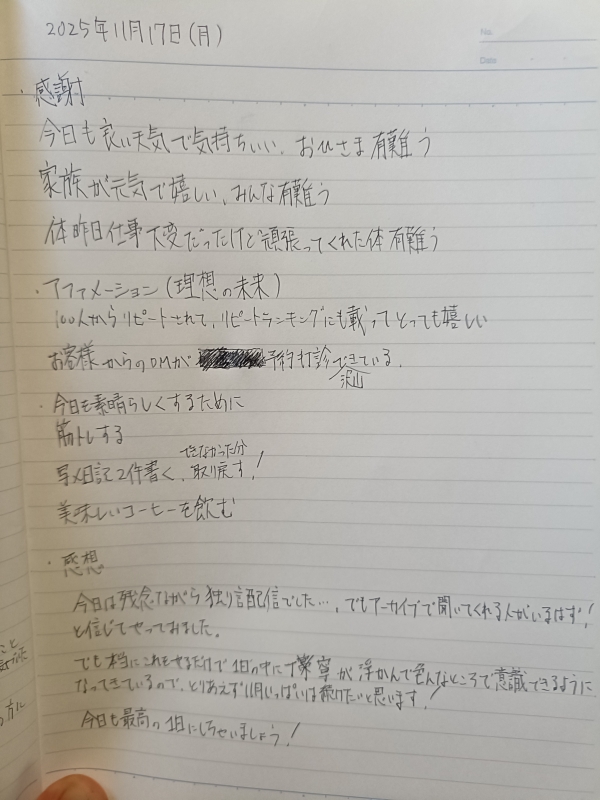 2025年11月17日(月)
No.
Date
・感謝
今日も良い天気で気持ちいい、おひさま有難う
家族が元気で嬉しい、みんな有難う
体昨日仕事大変だったけど頑張ってくれた体有難う
・アファメーション(理想の未来)
100人からリピートされて、リピートランキングにも載ってとっても嬉しい
お客様からのDMが 予約打診できている。
沢山
・今日も素晴らしくするために
筋トレする
できなかった分
写メ日記2件書く、取り戻す!
美味しいコーヒーを飲む
・感想
今日は残念ながら独り言配信でした…、でもアーカイブで聞いてくれる人がいるはず!
と信じてやっておました。
でも本当にこれをやるだけで1日の中に丁寧が浮かんで色んなところで意識できるように
なってきているので、とりあえず11月いっぱいは続けたいと思います!
今日も最高の1日にしちゃいましょう!
こと
方に